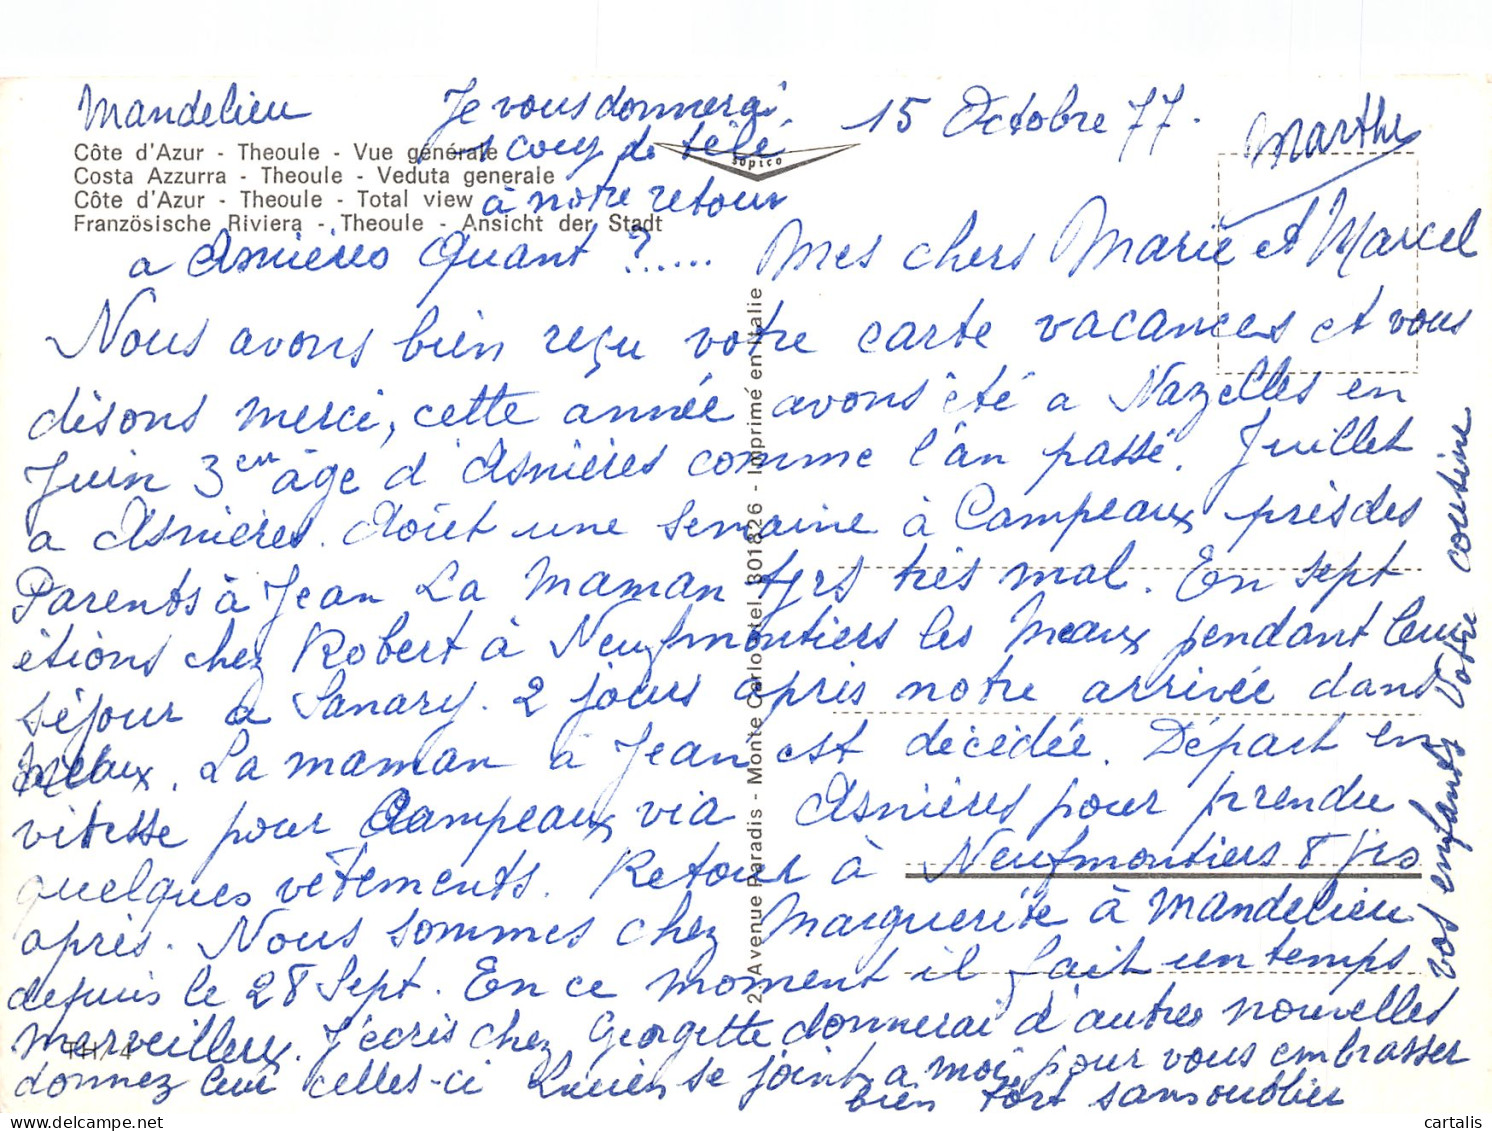 Mandelieu
15 Octobre 77.
Côte d'Azur - Theoule - Vue générale
Costa Azzurra - Theoule - Veduta generale
Côte d'Azur - Theoule - Total view
Französische Riviera - Theoule - Ansicht der Stadt
sopico
Mes chers Marie et Marcel
Nous avons bien reçu votre carte vacances et vous
disons merci, cette année avons été a Nazelles en
Juin 3em âge d'Asnières comme l'an passé. Juillet
a Asnières. Aôut une semaine à Campeaux près des
Parents à Jean La Maman tjrs très mal. En sept
étions chez Robert à Neufmontiers les Meaux pendant leur
séjour a Sanary. 2 jours après notre arrivée dans
Meaux. La maman à Jean est décédée. Départ en
vitesse pour Campeaux via Asnières pour prendre
quelques vêtements. Retour à Neufmontiers 8 jrs
après. Nous sommes chez Marguerite à Mandelieu
depuis le 28 Sept. En ce moment il fait un temps
Marveilleux. J'écris chez Georgette donnerai d'autres nouvelles
donnez leur celles-ci Lucien se joint a moi pour vous embrasser
bien fort sans oublier
vos enfants Votre cousine
Marthe
Je vous donnerai
1 coup de télé
à notre retour
a Asnières Quant ?.....
2 Avenue Paradis - Monte Carlo - tel. 301826 - Imprimé en Italie
TH/4
cartalis
www.delcampe.net